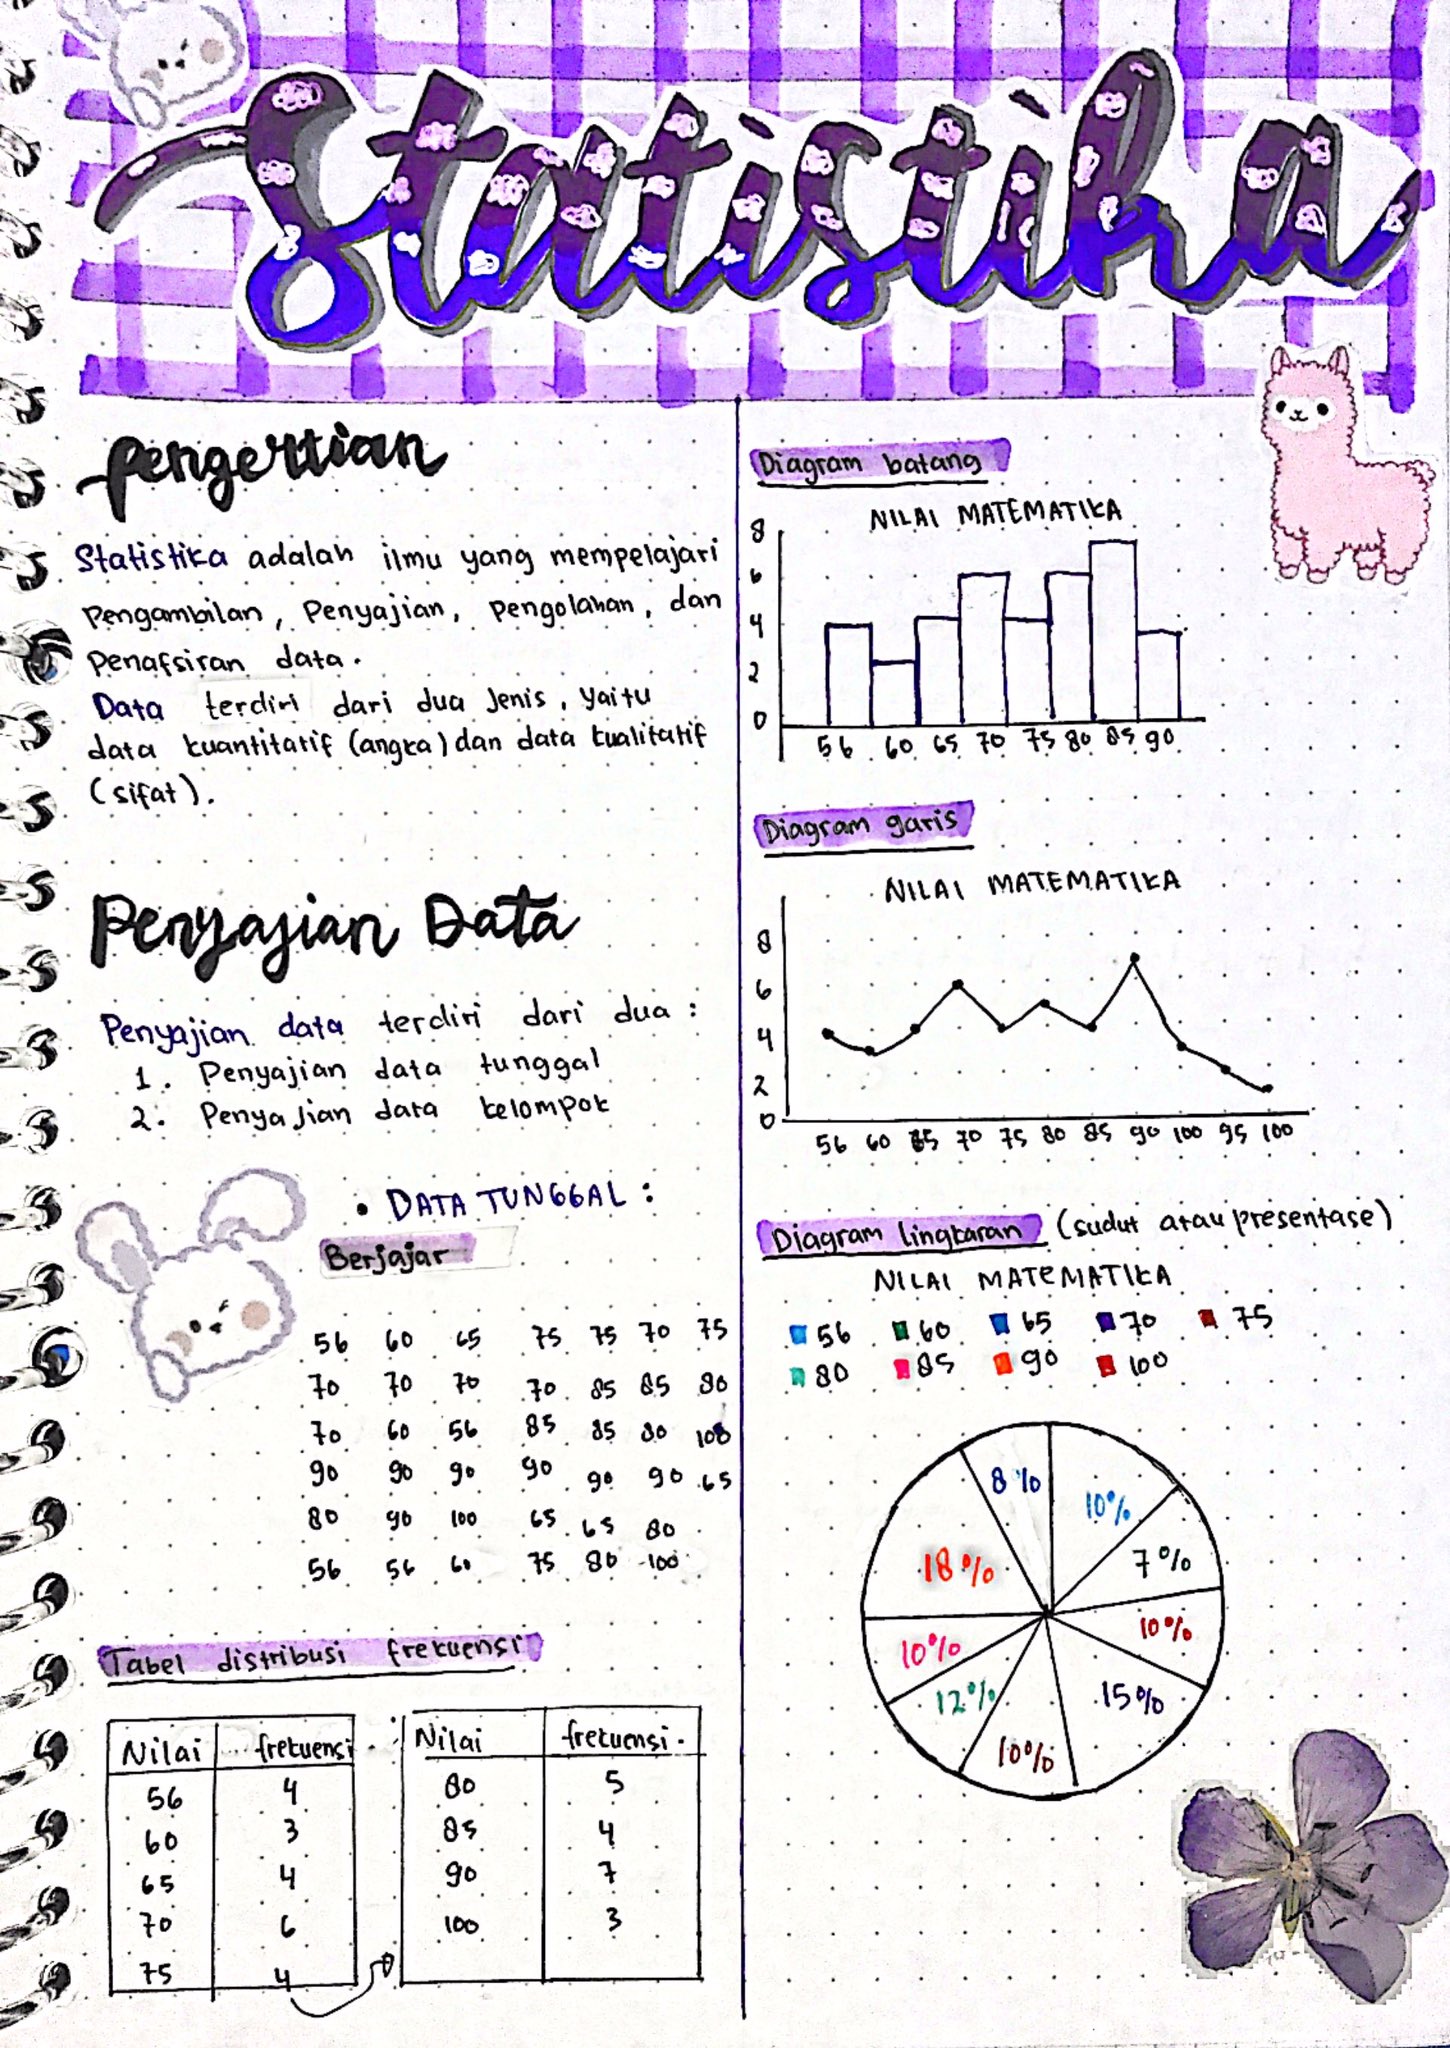 Statistika
Pengertian
Statistika adalah ilmu yang mempelajari
pengambilan, penyajian, pengolahan, dan
penafsiran data.
Data terdiri dari dua jenis, yaitu
data kuantitatif (angka) dan data kualitatif
(sifat).
Penyajian Data
Penyajian data terdiri dari dua :
1. Penyajian data tunggal
2. Penyajian data kelompok
• DATA TUNGGAL :
Berjajar
56 60 65 75 75 70 75
70 70 70 70 85 85 80
70 60 56 85 85 80 100
90 90 90 90 90 90 65
80 90 100 65 65 80
56 56 60 75 80 100
Tabel distribusi frekuensi
Nilai frekuensi
56 4
60 3
65 4
70 6
75 4
Nilai frekuensi
80 5
85 4
90 7
100 3
Diagram batang
NILAI MATEMATIKA
8
6
4
2
0
56 60 65 70 75 80 85 90
Diagram garis
NILAI MATEMATIKA
8
6
4
2
0
56 60 65 70 75 80 85 90 100 95 100
Diagram lingkaran (sudut atau presentase)
NILAI MATEMATIKA
56 60 65 70 75
80 85 90 100
8% 10%
18% 7%
10% 10%
12% 15%
10%